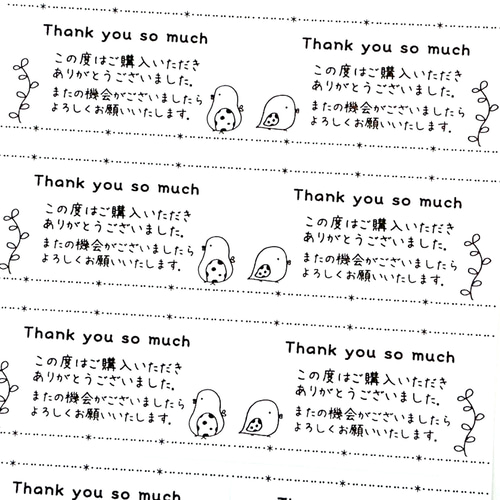 Thank you so much
この度はご購入いただき
ありがとうございました。
またの機会がございましたら
よろしくお願いいたします。
Thank you so much
この度はご購入いただき
ありがとうございました。
またの機会がございましたら
よろしくお願いいたします。
Thank you so much
この度はご購入いただき
ありがとうございました。
またの機会がございましたら
よろしくお願いいたします。
Thank you so much
この度はご購入いただき
ありがとうございました。
またの機会がございましたら
よろしくお願いいたします。
Thank you so much
この度はご購入いただき
ありがとうございました。
またの機会がございましたら
よろしくお願いいたします。
Thank you so much
この度はご購入いただき
ありがとうございました。
またの機会がございましたら
よろしくお願いいたします。
Thank you so much
Thank you so much